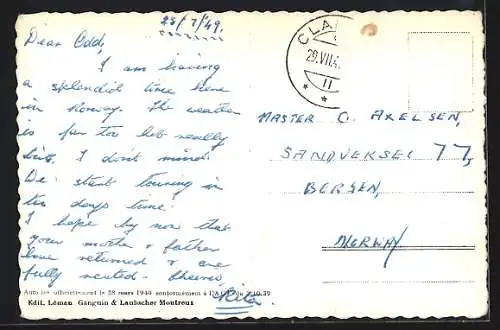 25/7/49.
Dear Odd,
I am having
a splendid time here
in Norway. The weather
is far too hot really
but I don't mind.
We start touring in
ten days time.
I hope by now that
your mother & father
have returned & are
fully rested. Cheerio
Rita.
CLA
29.VII.4
II
MASTER O. AXELSEN,
SANDVEKSEI 77,
BERGEN,
NORWAY
officiellement le 28 mars 1940 conformément à
Edit. Léman Ganguin & Laubscher Montreux